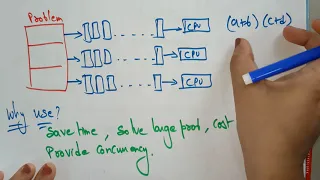 Problem
CPU
(a+b) (c+d)
CPU
CPU
Why use?
Save time, solve large prob, cost
Provide concurrency.